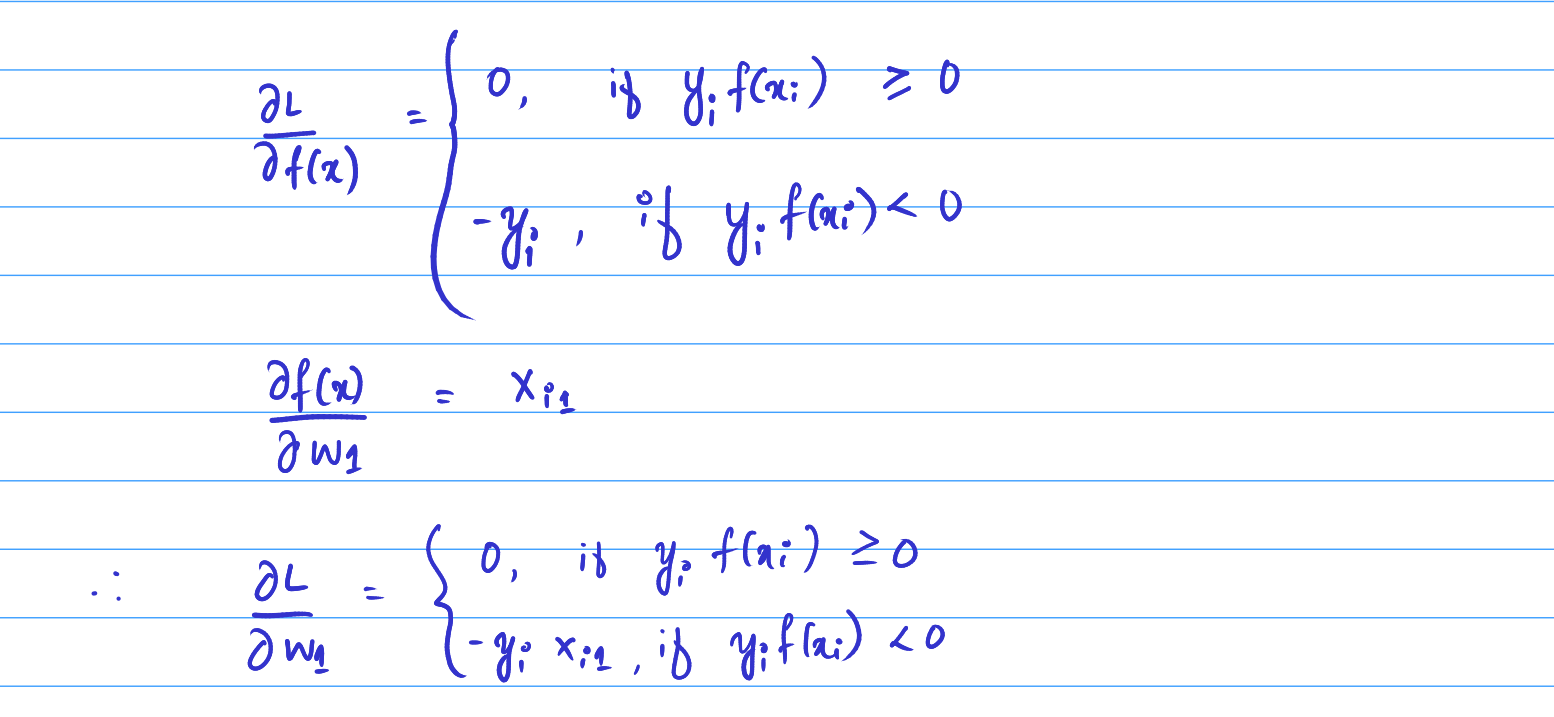 ∂L/∂f(x) = { 0, if yᵢ f(xᵢ) ≥ 0
-yᵢ, if yᵢ f(xᵢ) < 0
∂f(x)/∂w₁ = xᵢ₁
∴ ∂L/∂w₁ = { 0, if yᵢ f(xᵢ) ≥ 0
-yᵢ xᵢ₁, if yᵢ f(xᵢ) < 0